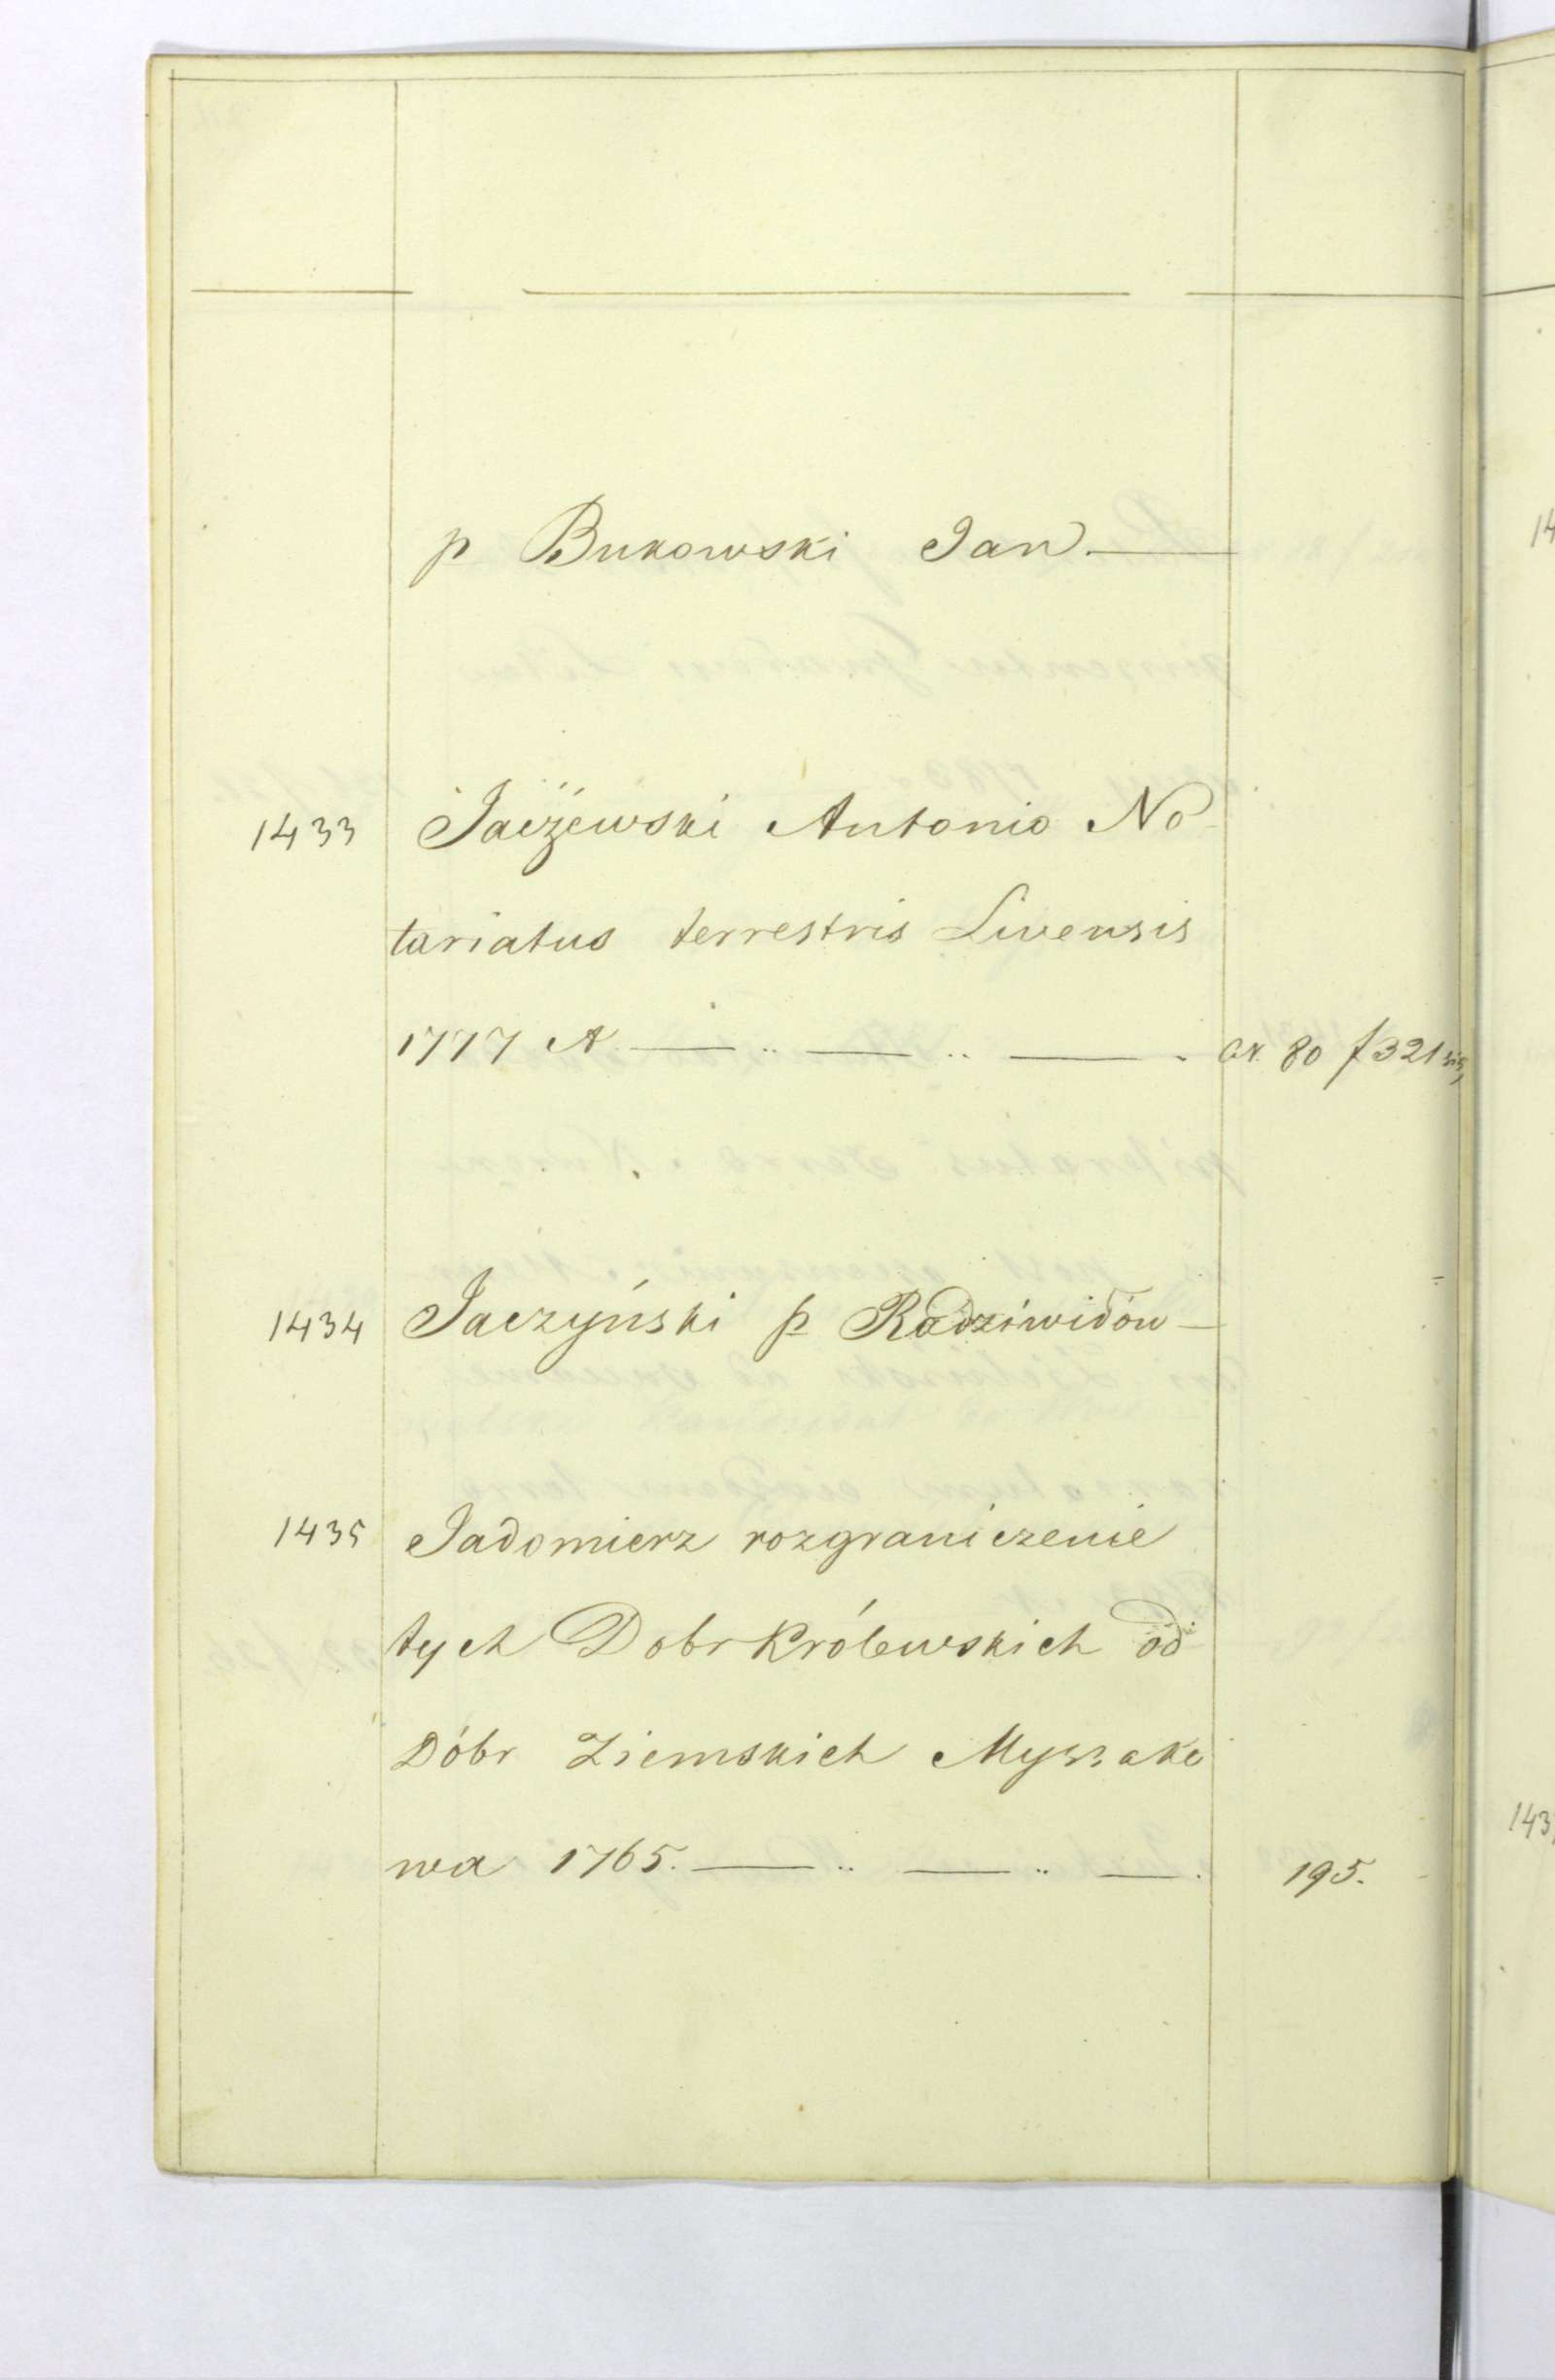 p Bukowski Jan. —
1433 Jaczewski Antonio No
tariatus terrestris Livensis
1777 A. — .. — .. — . Ar. 80 f 321
1434 Jaczyński p Radziwidów —
1435 Jadomierz rozgraniczenie
tych Dobr Królewskich od
Dóbr Ziemskich Myszako
wa 1765. — .. — .. — . 195.